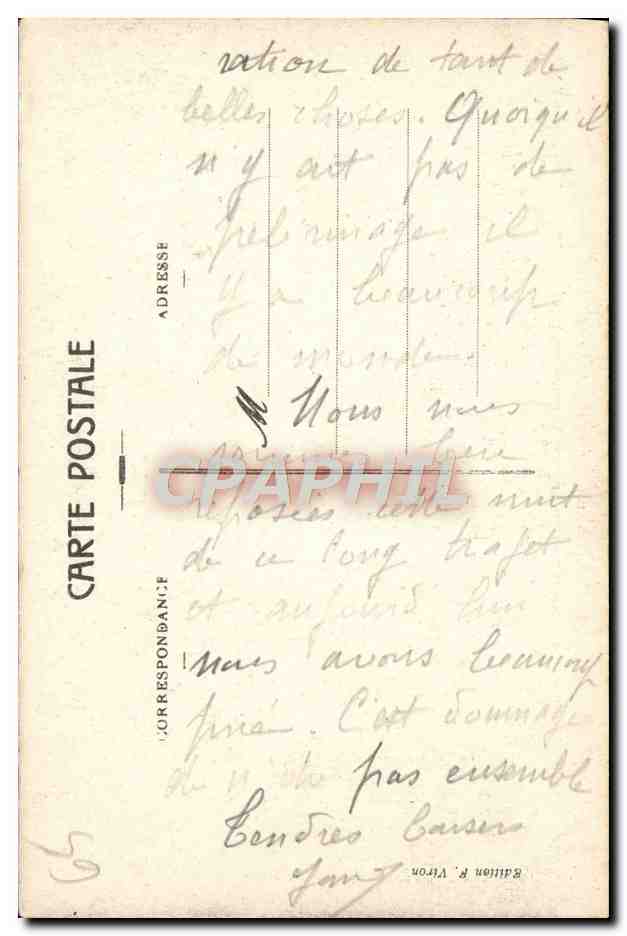 ration de tant de
belles choses. Quoiqu'il
n'y ait pas de
pelérinage il
y a beaucoup
de monde.
Nous nous
sommes bien
reposées cette nuit
de ce long trajet
et aujourd'hui
nous avons beaucoup
prié. C'est dommage
de n'être pas ensemble
Tendres baisers
CARTE POSTALE
ADRESSE
CORRESPONDANCE
CPAPHIL
Edition F. Viron